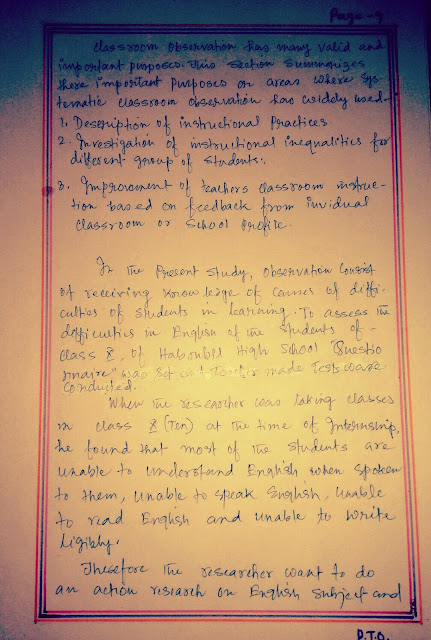 Page - 9
Classroom observation has many valid and
important purposes. This section summarizes
there important purposes or areas where sys-
tematic classroom observation has widely used-
1. Description of instructional Practices
2. Investigation of instructional inequalities for
different group of students.
3. Improvement of teachers classroom instruc-
tion based on feedback from invidual
classroom or school profile.
In the Present study, observation consist
of receiving knowledge of causes of diffi-
culties of students in learning. To assess the
difficulties in English of the students of -
class X, of High School "Questio
nnaire" was set and made Tests ware
conducted.
When the researcher was taking classes
in class X (Ten) at the time of Internship,
he found that most of the students are
unable to understand English when spoken
to them, unable to speak English, unable
to read English and unable to write
ligibly.
Therefore the researcher want to do
an action research on English Subject and
P.T.O.